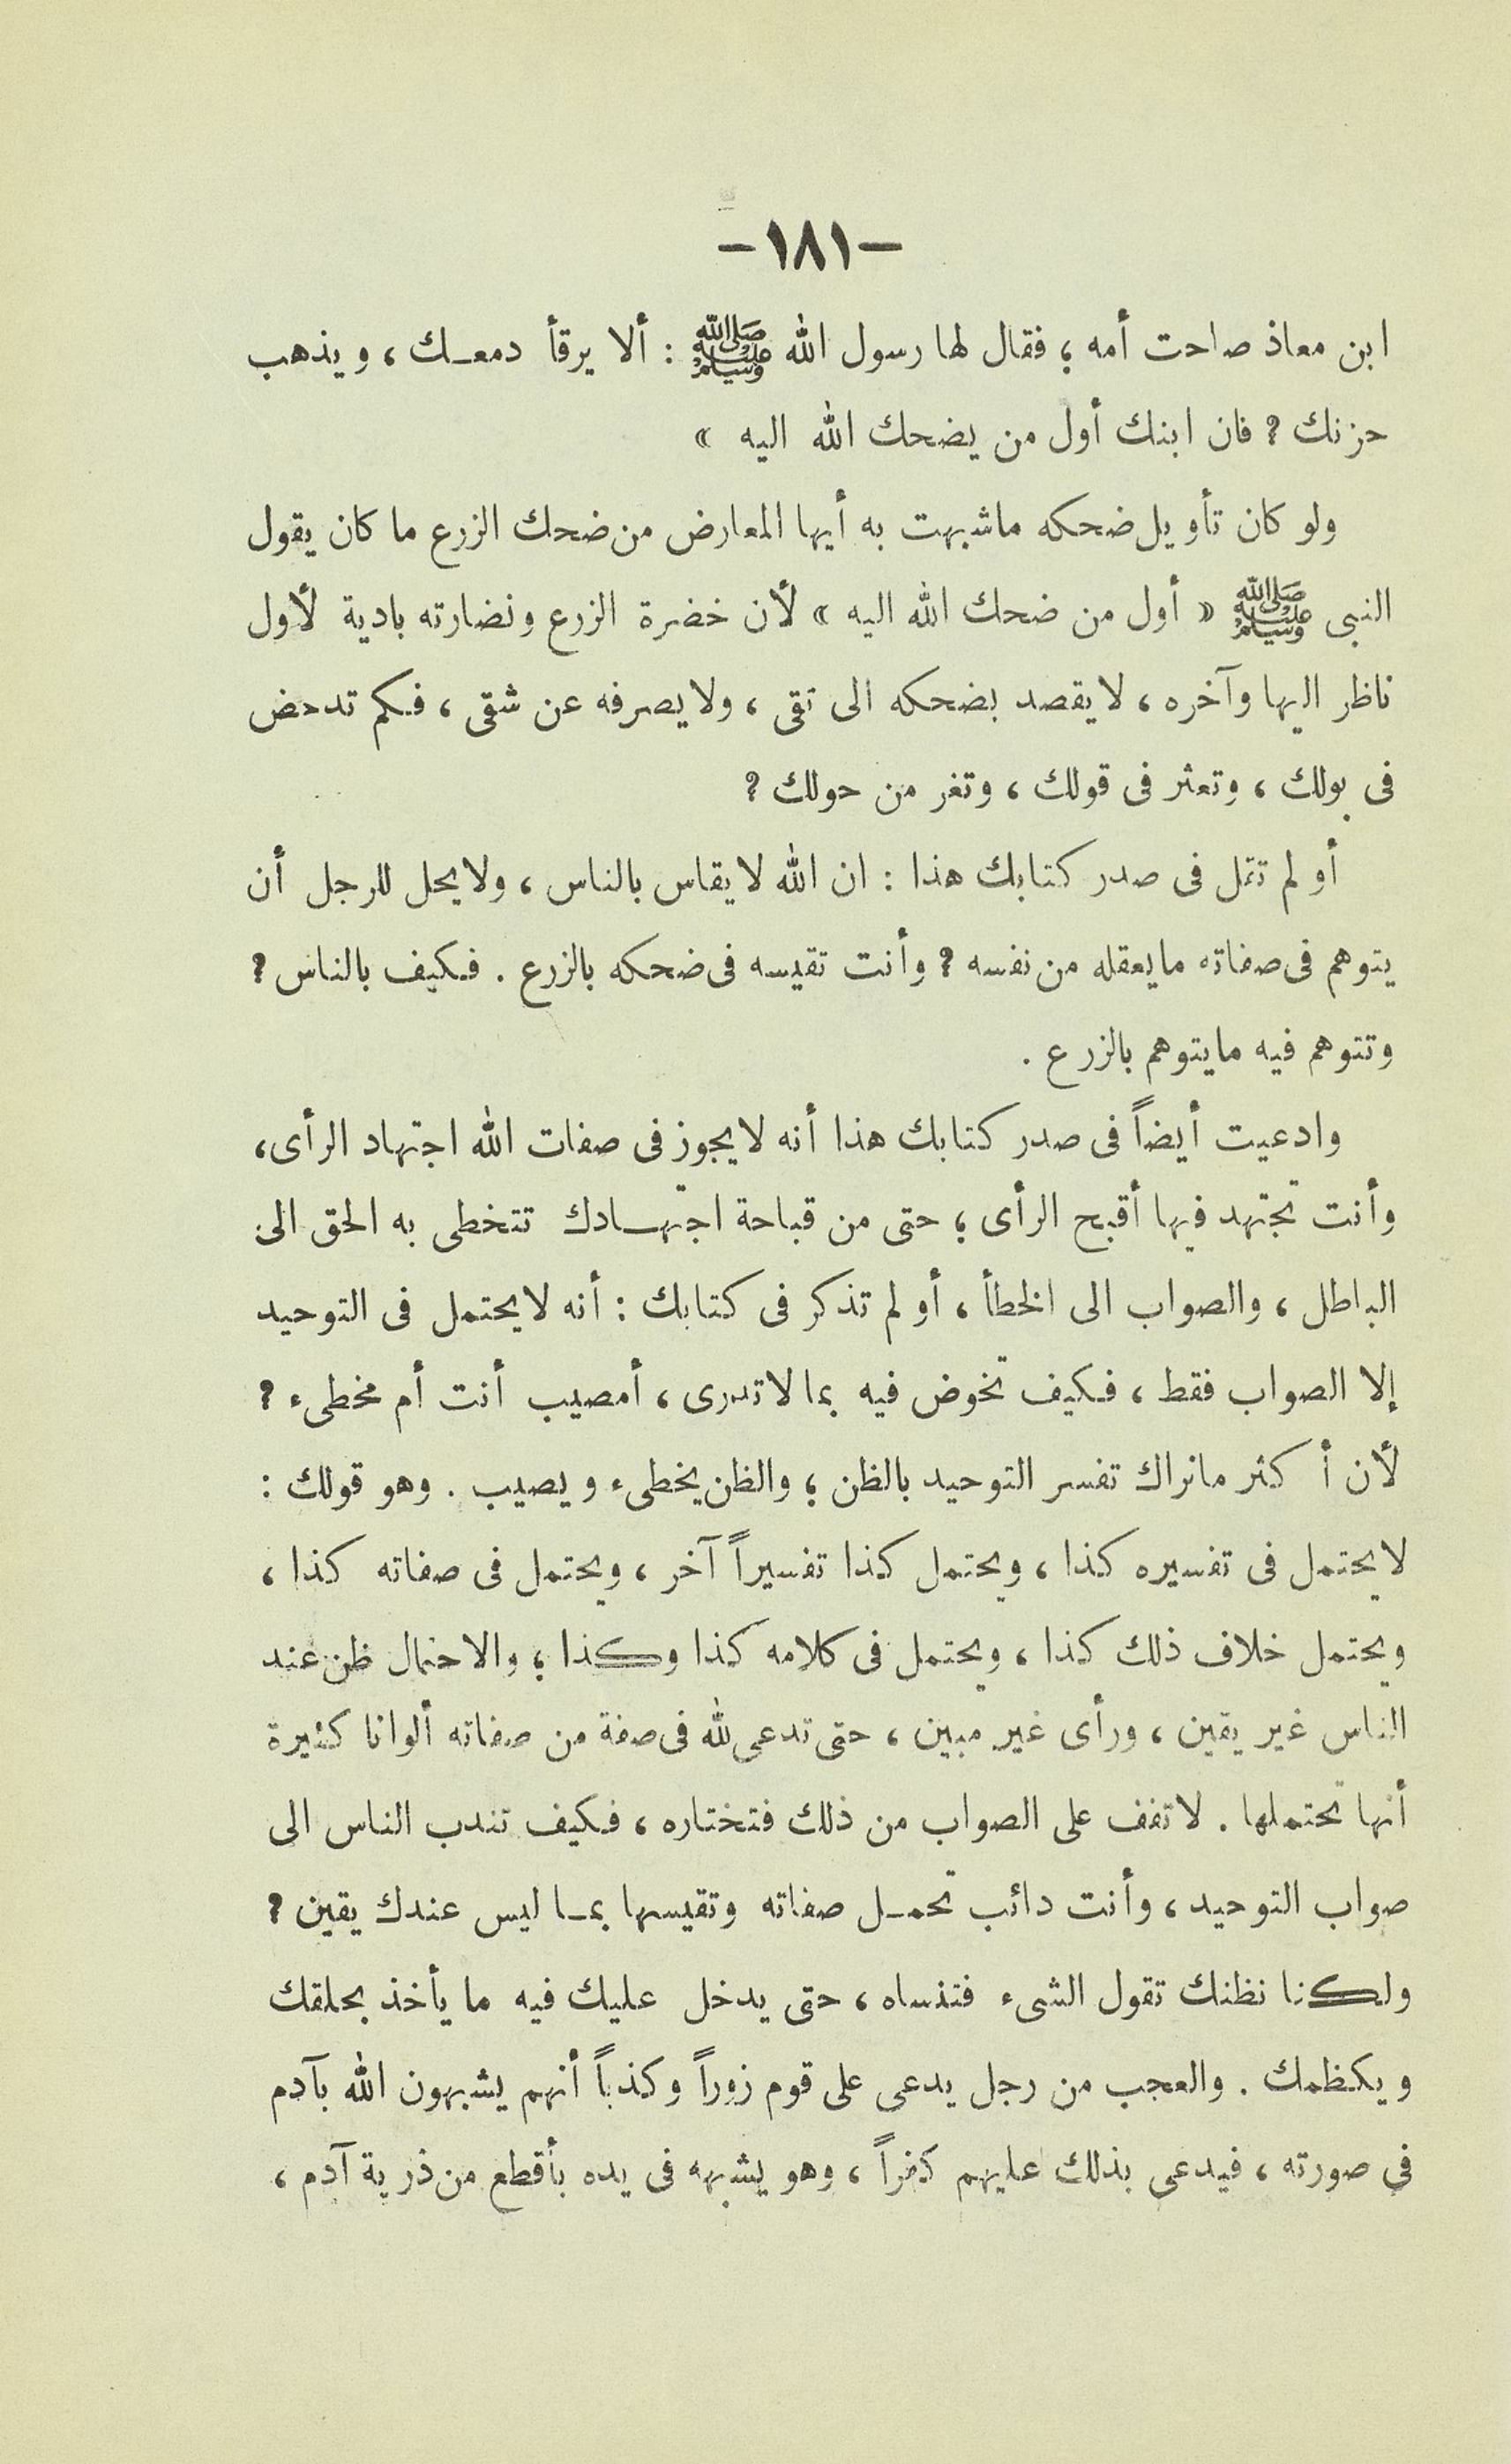 -١٨١-
ابن معاذ صاحت أمه ؛ فقال لها رسول الله ﷺ : ألا يرقأ دمعك ، ويذهب
حزنك ؟ فان ابنك أول من يضحك الله اليه »
ولو كان تأويل ضحكه ماشبهت به أيها المعارض من ضحك الزرع ما كان يقول
النبى ﷺ « أول من ضحك الله اليه » لأن خضرة الزرع ونضارته بادية لأول
ناظر اليها وآخره ، لا يقصد بضحكه الى تقى ، ولا يصرفه عن شقى ، فكم تدحض
فى بولك ، وتعثر فى قولك ، وتغر من حولك ؟
أو لم تقل فى صدر كتابك هذا : ان الله لا يقاس بالناس ، ولا يحل للرجل أن
يتوهم فى صفاته ما يعقله من نفسه ؟ وأنت تقيسه فى ضحكه بالزرع . فكيف بالناس ؟
وتتوهم فيه مايتوهم بالزرع .
وادعيت أيضاً فى صدر كتابك هذا أنه لا يجوز فى صفات الله اجتهاد الرأى،
وأنت تجتهد فيها أقبح الرأى ؛ حتى من قباحة اجتهادك تتخطى به الحق الى
الباطل ، والصواب الى الخطأ ، أو لم تذكر فى كتابك : أنه لا يحتمل فى التوحيد
إلا الصواب فقط ، فكيف تخوض فيه بما لا تدرى ، أمصيب أنت أم مخطىء ؟
لأن أكثر مانراك تفسر التوحيد بالظن ؛ والظن يخطىء ويصيب . وهو قولك :
لا يحتمل فى تفسيره كذا ، ويحتمل كذا تفسيراً آخر ، ويحتمل فى صفاته كذا ،
ويحتمل خلاف ذلك كذا ، ويحتمل فى كلامه كذا وكذا ؛ والاحتمال ظن عند
الناس غير يقين ، ورأى غير مبين ، حتى تدعى لله فى صفة من صفاته ألوانا كثيرة
أنها تحتملها . لا تفف على الصواب من ذلك فتختاره ، فكيف تندب الناس الى
صواب التوحيد ، وأنت دائب تحمل صفاته وتقيسها بما ليس عندك يقين ؟
ولكنا نظنك تقول الشىء فتنساه ، حتى يدخل عليك فيه ما يأخذ بحلقك
ويكظمك . والعجب من رجل يدعى على قوم زوراً وكذباً أنهم يشبهون الله بآدم
فى صورته ، فيدعى بذلك عليهم كفراً ، وهو يشبهه فى يده بأقطع من ذرية آدم ،